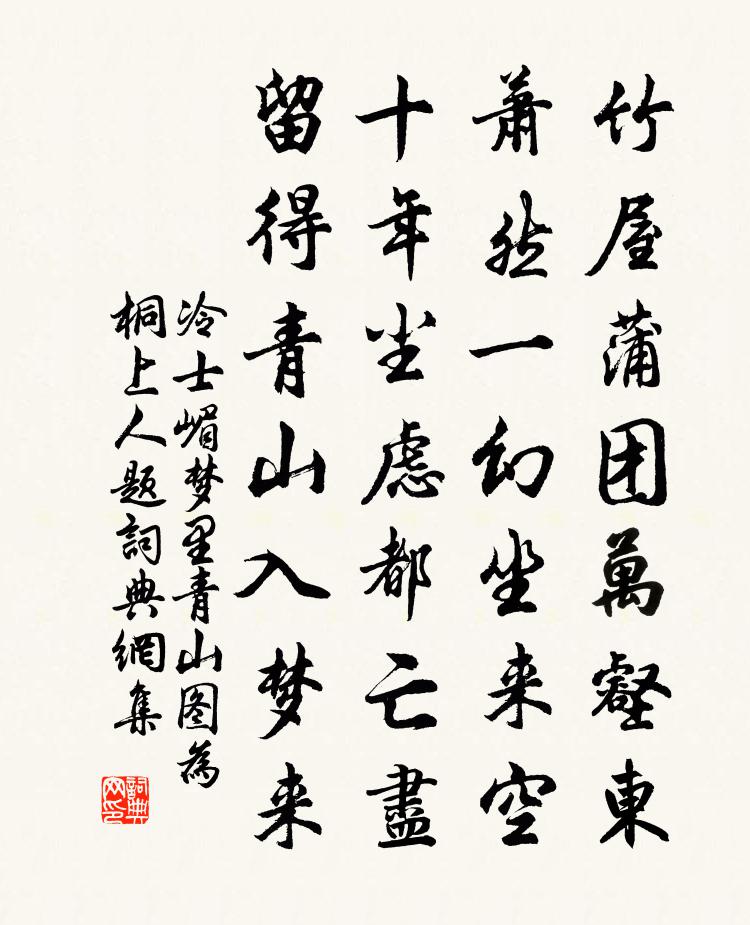 竹屋蒲团萬壑東
萧然一幻坐来空
十年尘虑都亡盡
留得青山入梦来
冷士嵋梦里青山图為
桐上人题詞典網集
詞典网印